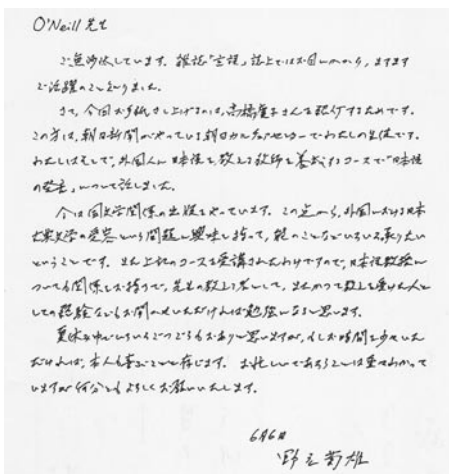 O'Neill 先生
ご無沙汰しています。雑誌「言語」誌上ではお目にかかり、ますます
ご活躍のこと
さて、今回お手紙さし上げるのは、高橋 子さんを紹介するためです。
この方は、朝日新聞がやっている朝日カルチャセンターでわたしの生徒です。
わたしはそこで、外国人に日本語を教える教師を養成するコースで「日本語
の発音」について話しました。
今は国文学関係の出版をやっています。この から、外国における日本
古典文学の受容という問題に興味を持って、能のことなどいろいろ承りたい
ということです。また上記のコースを受講されたわけですので、日本語教授に
ついても関 をお持ちで、先生の教える として、またかつて教えを受けた人と
しての経験などもお聞かせいただければ勉強になると思います。
夏休み中でいろいろごつごうもおありと思いますが、もしお時間を少々いた
だければ、本人も喜ぶことと存じます。お忙しいであろうことは重々わかって
いますが何分ともよろしくお願いいたします。
6月6日
野元菊雄